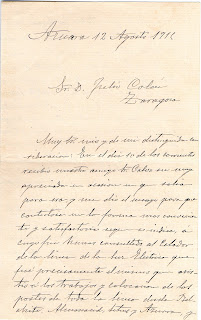 Azuara 12 Agosto 1911
Sr. D. Julio Colón
Zaragoza
Muy Sr. mío y de mi distinguida con
sideracion: En el dia 10 de los corrientes
recibi nuestro amigo Sr. Calvo en muy
apreciada en ocasion en que salia
para esa, y me dió el encargo para que
contestara en la forma mas convenien
te y satisfactoria que se pudiera, á
cuyo fin hemos consultado al Celador
de la linea de la luz Eléctrica que
fué precisamente el mismo que asis
tió á los trabajos y colocacion de los
postes de toda la linea desde
Almonacid, Letux y Azuara, y